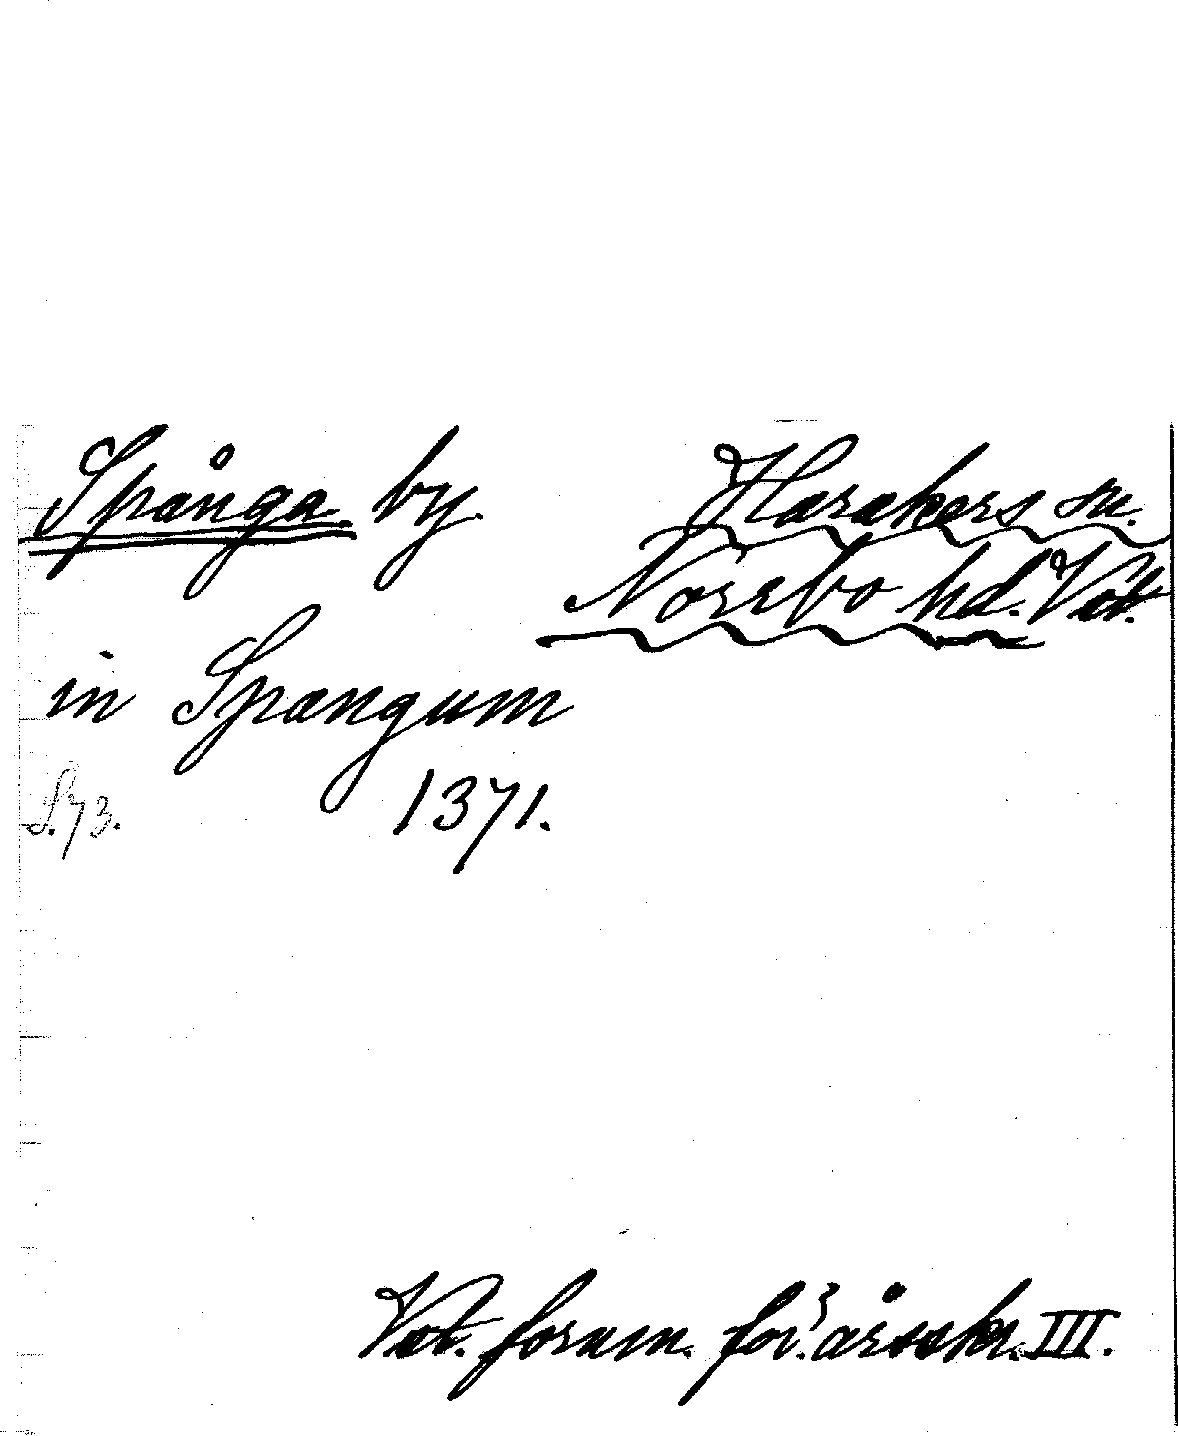 Spånga. by. Harakers sn.
Norrbo hd. Väst.
in Spangum
S. 73. 1371.
Väst. fornm. för:s årsskr. III.